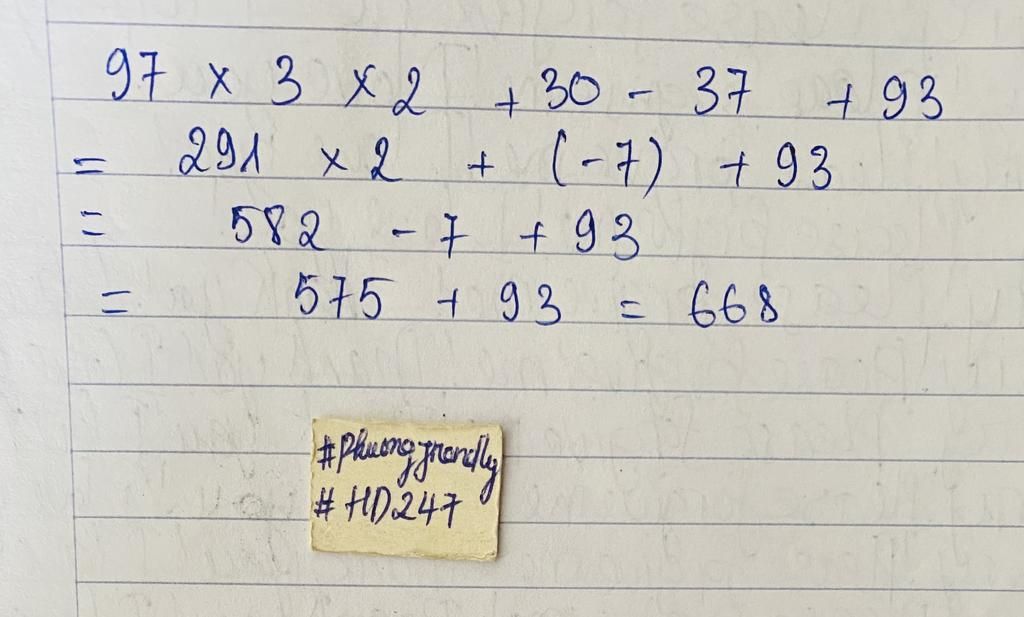 97 × 3 × 2 + 30 - 37 + 93
= 291 × 2 + (-7) + 93
= 582 - 7 + 93
= 575 + 93 = 668
#HD247